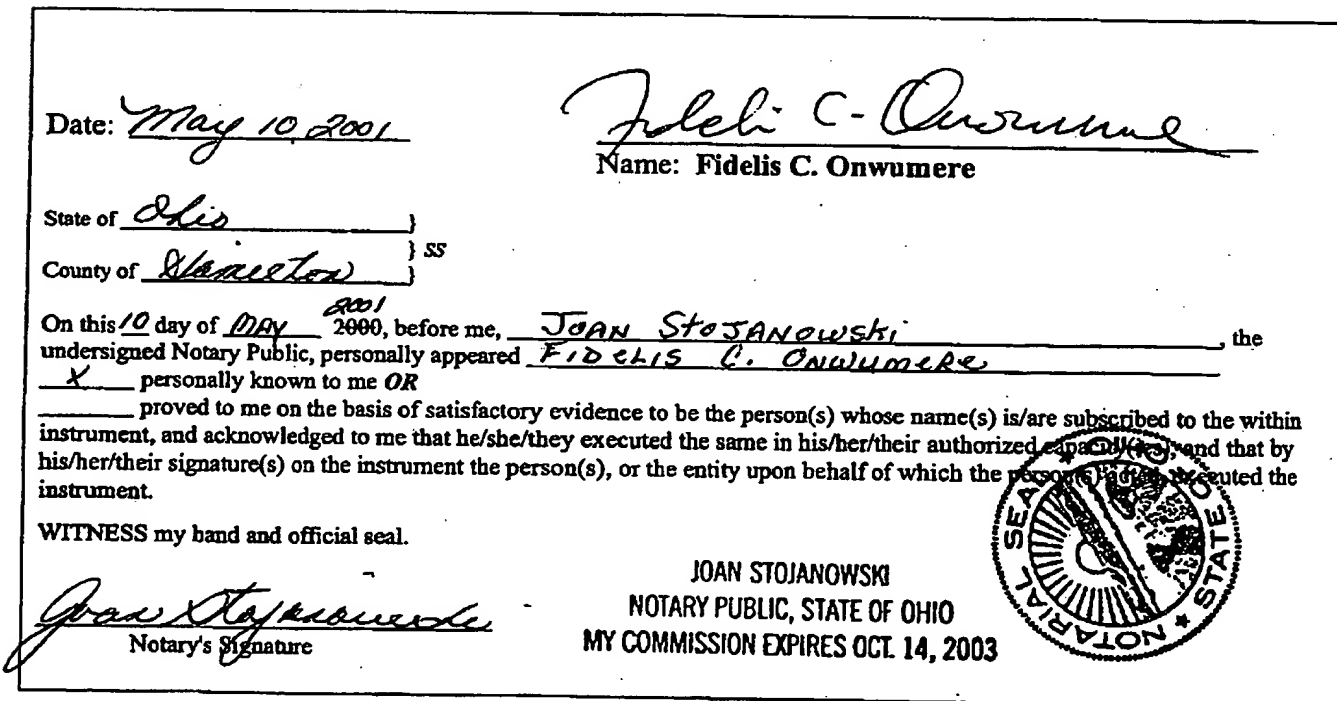 Date: May 10, 2001
Fidelis C. Onwumere
Name: Fidelis C. Onwumere
State of Ohio }
} SS
County of Hamilton }
2001
On this 10 day of MAY 2000, before me, JOAN STOJANOWSKI, the
undersigned Notary Public, personally appeared FIDELIS C. ONWUMERE
X personally known to me OR
proved to me on the basis of satisfactory evidence to be the person(s) whose name(s) is/are subscribed to the within
instrument, and acknowledged to me that he/she/they executed the same in his/her/their authorized capacity(ies), and that by
his/her/their signature(s) on the instrument the person(s), or the entity upon behalf of which the person(s) acted, executed the
instrument.
WITNESS my hand and official seal.
Joan Stojanowski
Notary's Signature
JOAN STOJANOWSKI
NOTARY PUBLIC, STATE OF OHIO
MY COMMISSION EXPIRES OCT. 14, 2003
NOTARIAL SEAL ★ STATE OF OHIO ★